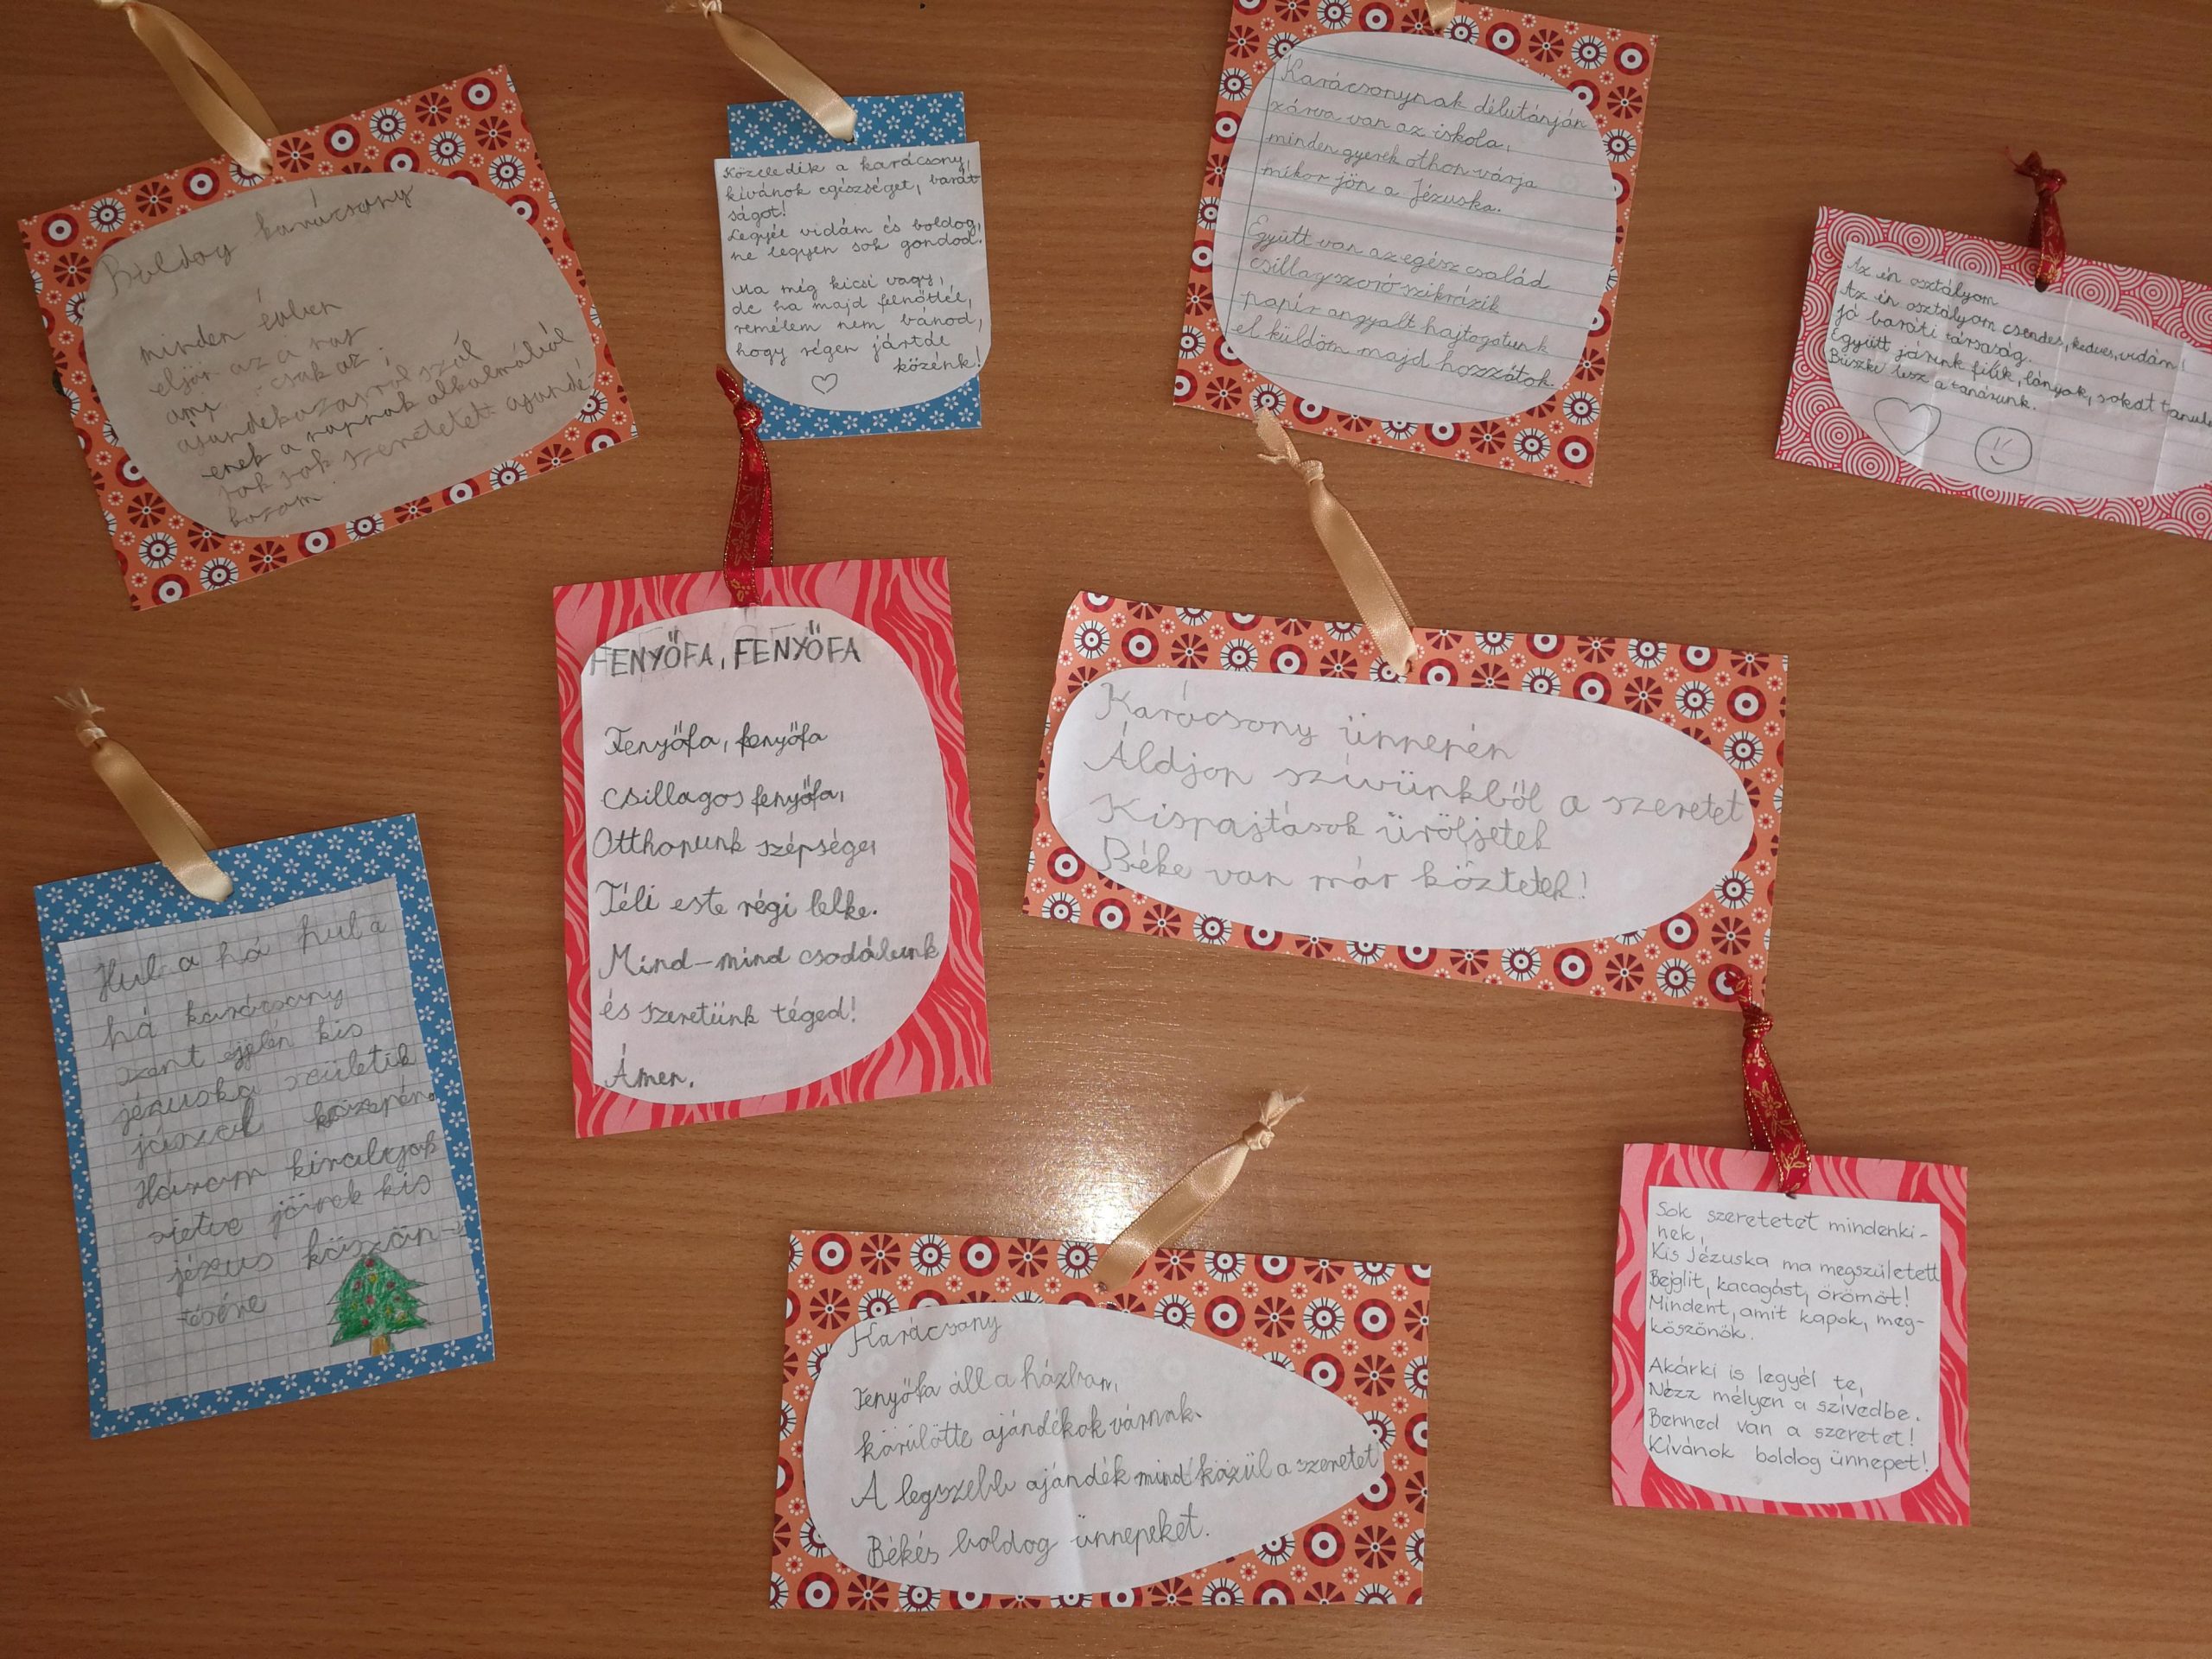 Boldog karácsony
minden évben
eljön az a nap
ami csak az
ajandekozasrol szól
enek a napnak alkalmából
sok sok szeretetet ajandé-
kozom
Közeledik a karácsony,
kívánok egészséget, barát-
ságot!
Legyél vidám és boldog,
ne legyen sok gondod.
Ma még kicsi vagy,
de ha majd felnőttél,
remélem nem bánod,
hogy régen jártál
közénk!
Karácsonynak délutánján
zárva van az iskola,
minden gyerek othon várja
mikor jön a Jézuska.
Együtt van az egész család
csillagszoró szikrázik
papír angyalt hajtogatunk
el küldöm majd hozzátok.
Az én osztályom
Az én osztályom csendes, kedves, vidám!
Jó baráti társaság.
Együtt járunk fiúk, lányok, sokat tanulu
Büszke lesz a tanárunk.
FENYŐFA, FENYŐFA
Fenyőfa, fenyőfa
csillagos fenyőfa,
Otthonunk szépsége,
Téli este régi lelke.
Mind-mind csodálunk
és szeretünk téged!
Ámen.
Karácsony ünnepén
Áldjon szívünkből a szeretet
Kispajtások üröljetek
Béke van már köztetek!
Hul a hó hul a
hó karácsony
szent éjjelén kis
jézuska születik
jászol közepén
Három királyok
sietve jönek kis
jézus köszön-
tésére
Karácsony
Fenyőfa áll a házban,
körülötte ajándékok várnak.
A legszebb ajándék mind közül a szeretet
Békés boldog ünnepeket.
Sok szeretetet mindenki-
nek,
Kis Jézuska ma megszületett
Bejglit, kacagást, örömöt!
Mindent, amit kapok, meg-
köszönök.
Akárki is legyél te,
Nézz mélyen a szívedbe.
Benned van a szeretet!
Kívánok boldog ünnepet!